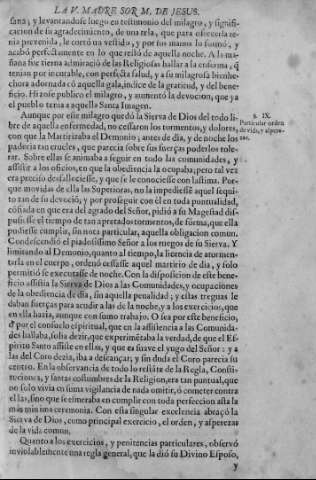 LA V. MADRE SOR M. DE JESUS.
sana, y levantandose luego en testimonio del milagro, y signifi-
cacion de su agradecimiento, de una tela, que para ofrecerla te-
nia prevenida, le cortó un vestido, y por sus manos lo formó, y
acabò perfectamente en lo que restò de aquella noche. A la ma-
ñana fue tierna admiraciō de las Religiosas hallar a la enferma, q̄
tenian por incurable, con perfecta salud, y a su milagrosa bienhe-
chora adornada cō aquella gala, indice de la gratitud, y del bene-
ficio. Hizose publico el milagro, y aumentò la devocion, que ya
el pueblo tenia a aquella Santa Imagen.
Aunque por este milagro quedò la Sierva de Dios del todo li-
bre de aquella enfermedad, no cessaron los tormentos, y dolores,
con que la Martirizaba el Demonio; antes de dia, y de noche los
padecia tan crueles, que parecia sobre sus fuerças poderlos tole-
rar. Sobre ellas se animaba a seguir en todo las comunidades, y
assistir a los oficios, en que la obediencia la ocupaba; pero tal vez
era preciso desfalleciesse, y que se le conociesse con lastima. Por-
que movidas de ella las Superioras, no la impediesse aquel sequi-
to tan de su devociō, y por proseguir con èl en toda puntualidad,
cōfiada en que era del agrado del Señor, pidiò a su Magestad dis-
pusiesse el tiempo de tan apretados tormentos, de forma, que ella
pudiesse cumplir, sin nota particular, aquella obligacion comun.
Condescendiò el piadosissimo Señor a los ruegos de su Sierva. Y
limitando al Demonio, quanto al tiempo, la licencia de atormen-
tarla en el cuerpo, ordenò cessasse aquel martirio de dia, y solo
permitiò se executasse de noche. Con la disposicion de este bene-
ficio assistia la Sierva de Dios a las Comunidades, y ocupaciones
de la obediencia de dia, sin aquella penalidad; y estas treguas le
daban fuerças para acudir a las de la noche, y a los exercicios, que
en ella hazia, aunque con sumo trabajo. O sea por este beneficio,
ò por el consuelo espiritual, que en la assistencia a las Comunida-
des hallaba, solia dezir, que experimētaba la verdad, de que el Es-
piritu Santo assiste en ellas, y que es suave el yugo del Señor: y a
las del Coro dezia, iba a descansar; y sin duda el Coro parecia su
centro. En la observancia de todo lo restāte de la Regla, Consti-
tuciones, y santas costumbres de la Religion, era tan puntual, que
no solo vivia en suma vigilancia de nada omitir, ò cometer contra
ellas, sino que se esmeraba en cumplir con toda perfeccion asta la
mas minima ceremonia. Con esta singular excelencia abraçò la
Sierva de Dios, como principal exercicio, el orden, y asperezas
de la vida comun.
Quanto a los exercicios, y penitencias particulares, observò
inviolablemente una regla general, que la diò su Divino Esposo,
y
§. IX.
Particular orden
de vida, y aspere-
zas.